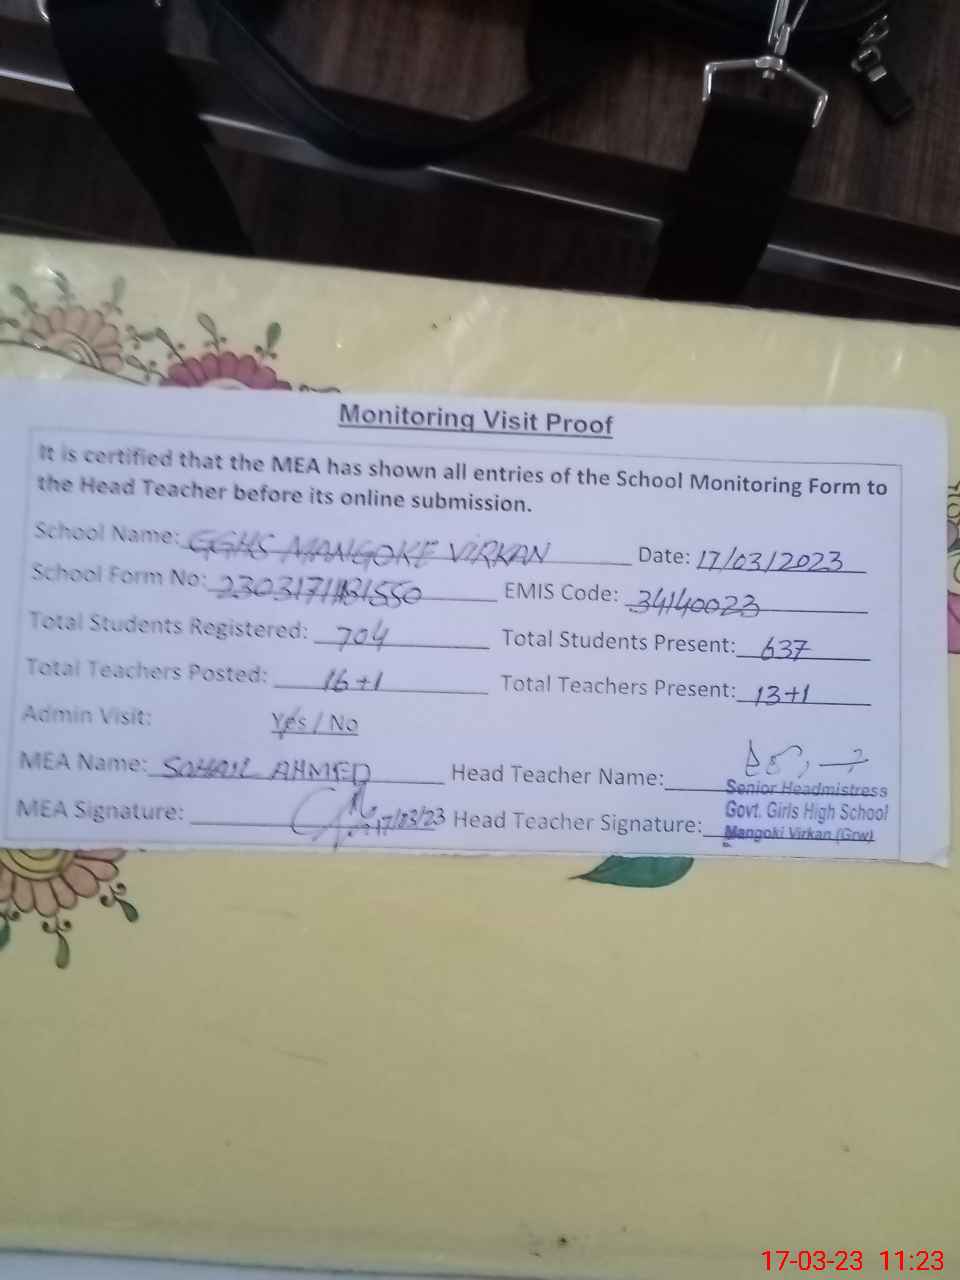 Monitoring Visit Proof
It is certified that the MEA has shown all entries of the School Monitoring Form to
the Head Teacher before its online submission.
School Name: GGHS MANGOKE VIRKAN Date: 17/03/2023
School Form No: EMIS Code: 34140023
Total Students Registered: 704 Total Students Present: 637
Total Teachers Posted: 16+1 Total Teachers Present: 13+1
Admin Visit: Yes / No
MEA Name: SOHAIL AHMED Head Teacher Name:
Senior Headmistress
Govt. Girls High School
MEA Signature: 17/03/23 Head Teacher Signature:
Mangoki Virkan (Grw)
17-03-23 11:23